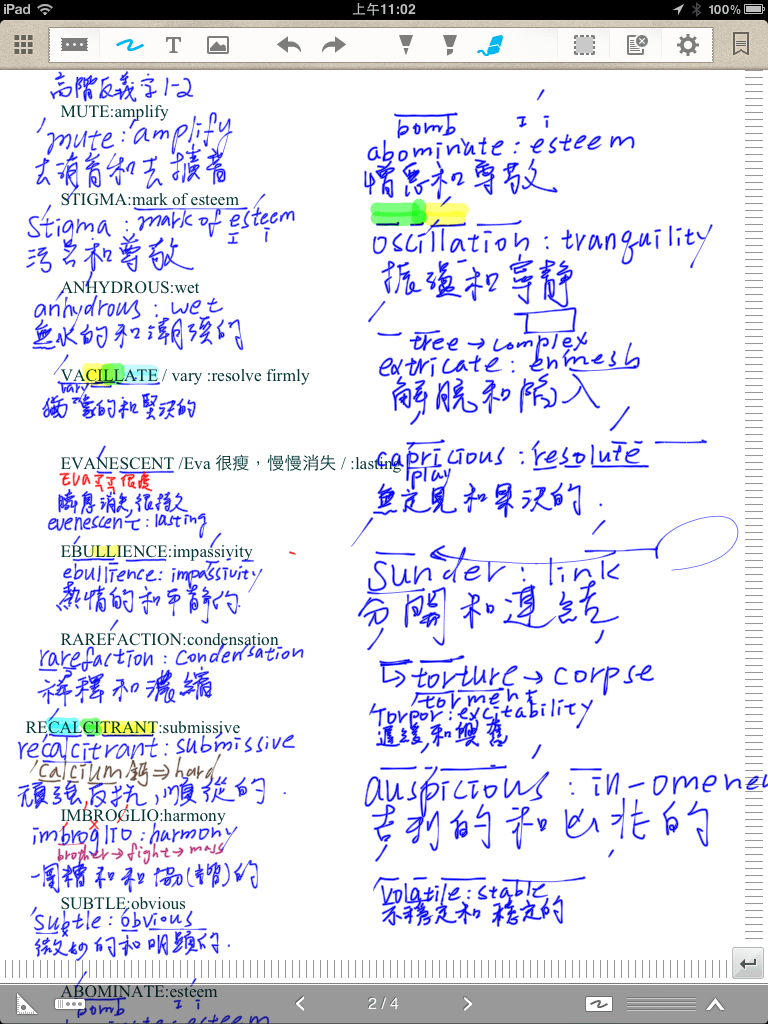 iPad
上午11:02
100%
T
高階反義字1-2
MUTE:amplify
mute:amplify
去消音和去擴音
STIGMA:mark of esteem
Stigma:mark of esteem
I i
污名和尊敬
ANHYDROUS:wet
anhydrous:wet
無水的和潮濕的
VACILLATE / vary :resolve firmly
vary
猶豫的和堅決的
EVANESCENT /Eva 很瘦，慢慢消失 / :lasting
EVA 很瘦
瞬息消失,很持久
evenescent:lasting
EBULLIENCE:impassivity
ebullience:impassivity
熱情的和平靜的
RAREFACTION:condensation
rarefaction:condensation
稀釋和濃縮
RECALCITRANT:submissive
recalcitrant:submissive
calcium 鈣⇒hard
頑強,反抗,順從的.
IMBROGLIO:harmony
imbroglio:harmony
brother→fight→mass
一團糟和和協(諧)的
SUBTLE:obvious
subtle:obvious
微妙的和明顯的.
ABOMINATE:esteem
bomb I i
abominate:esteem
bomb I i
abominate:esteem
憎惡和尊敬
oscillation:tranquility
振盪和寧靜
tree→complex
extricate:enmesh
解脫和陷入
capricious:resolute
play
無定見和果決的.
sunder:link
分開和連結
torture→corpse
torment
Torpor:excitability
遲緩和興奮
auspicious:in-omened
吉利的和凶兆的
volatile:stable
不穩定和穩定的
2 / 4